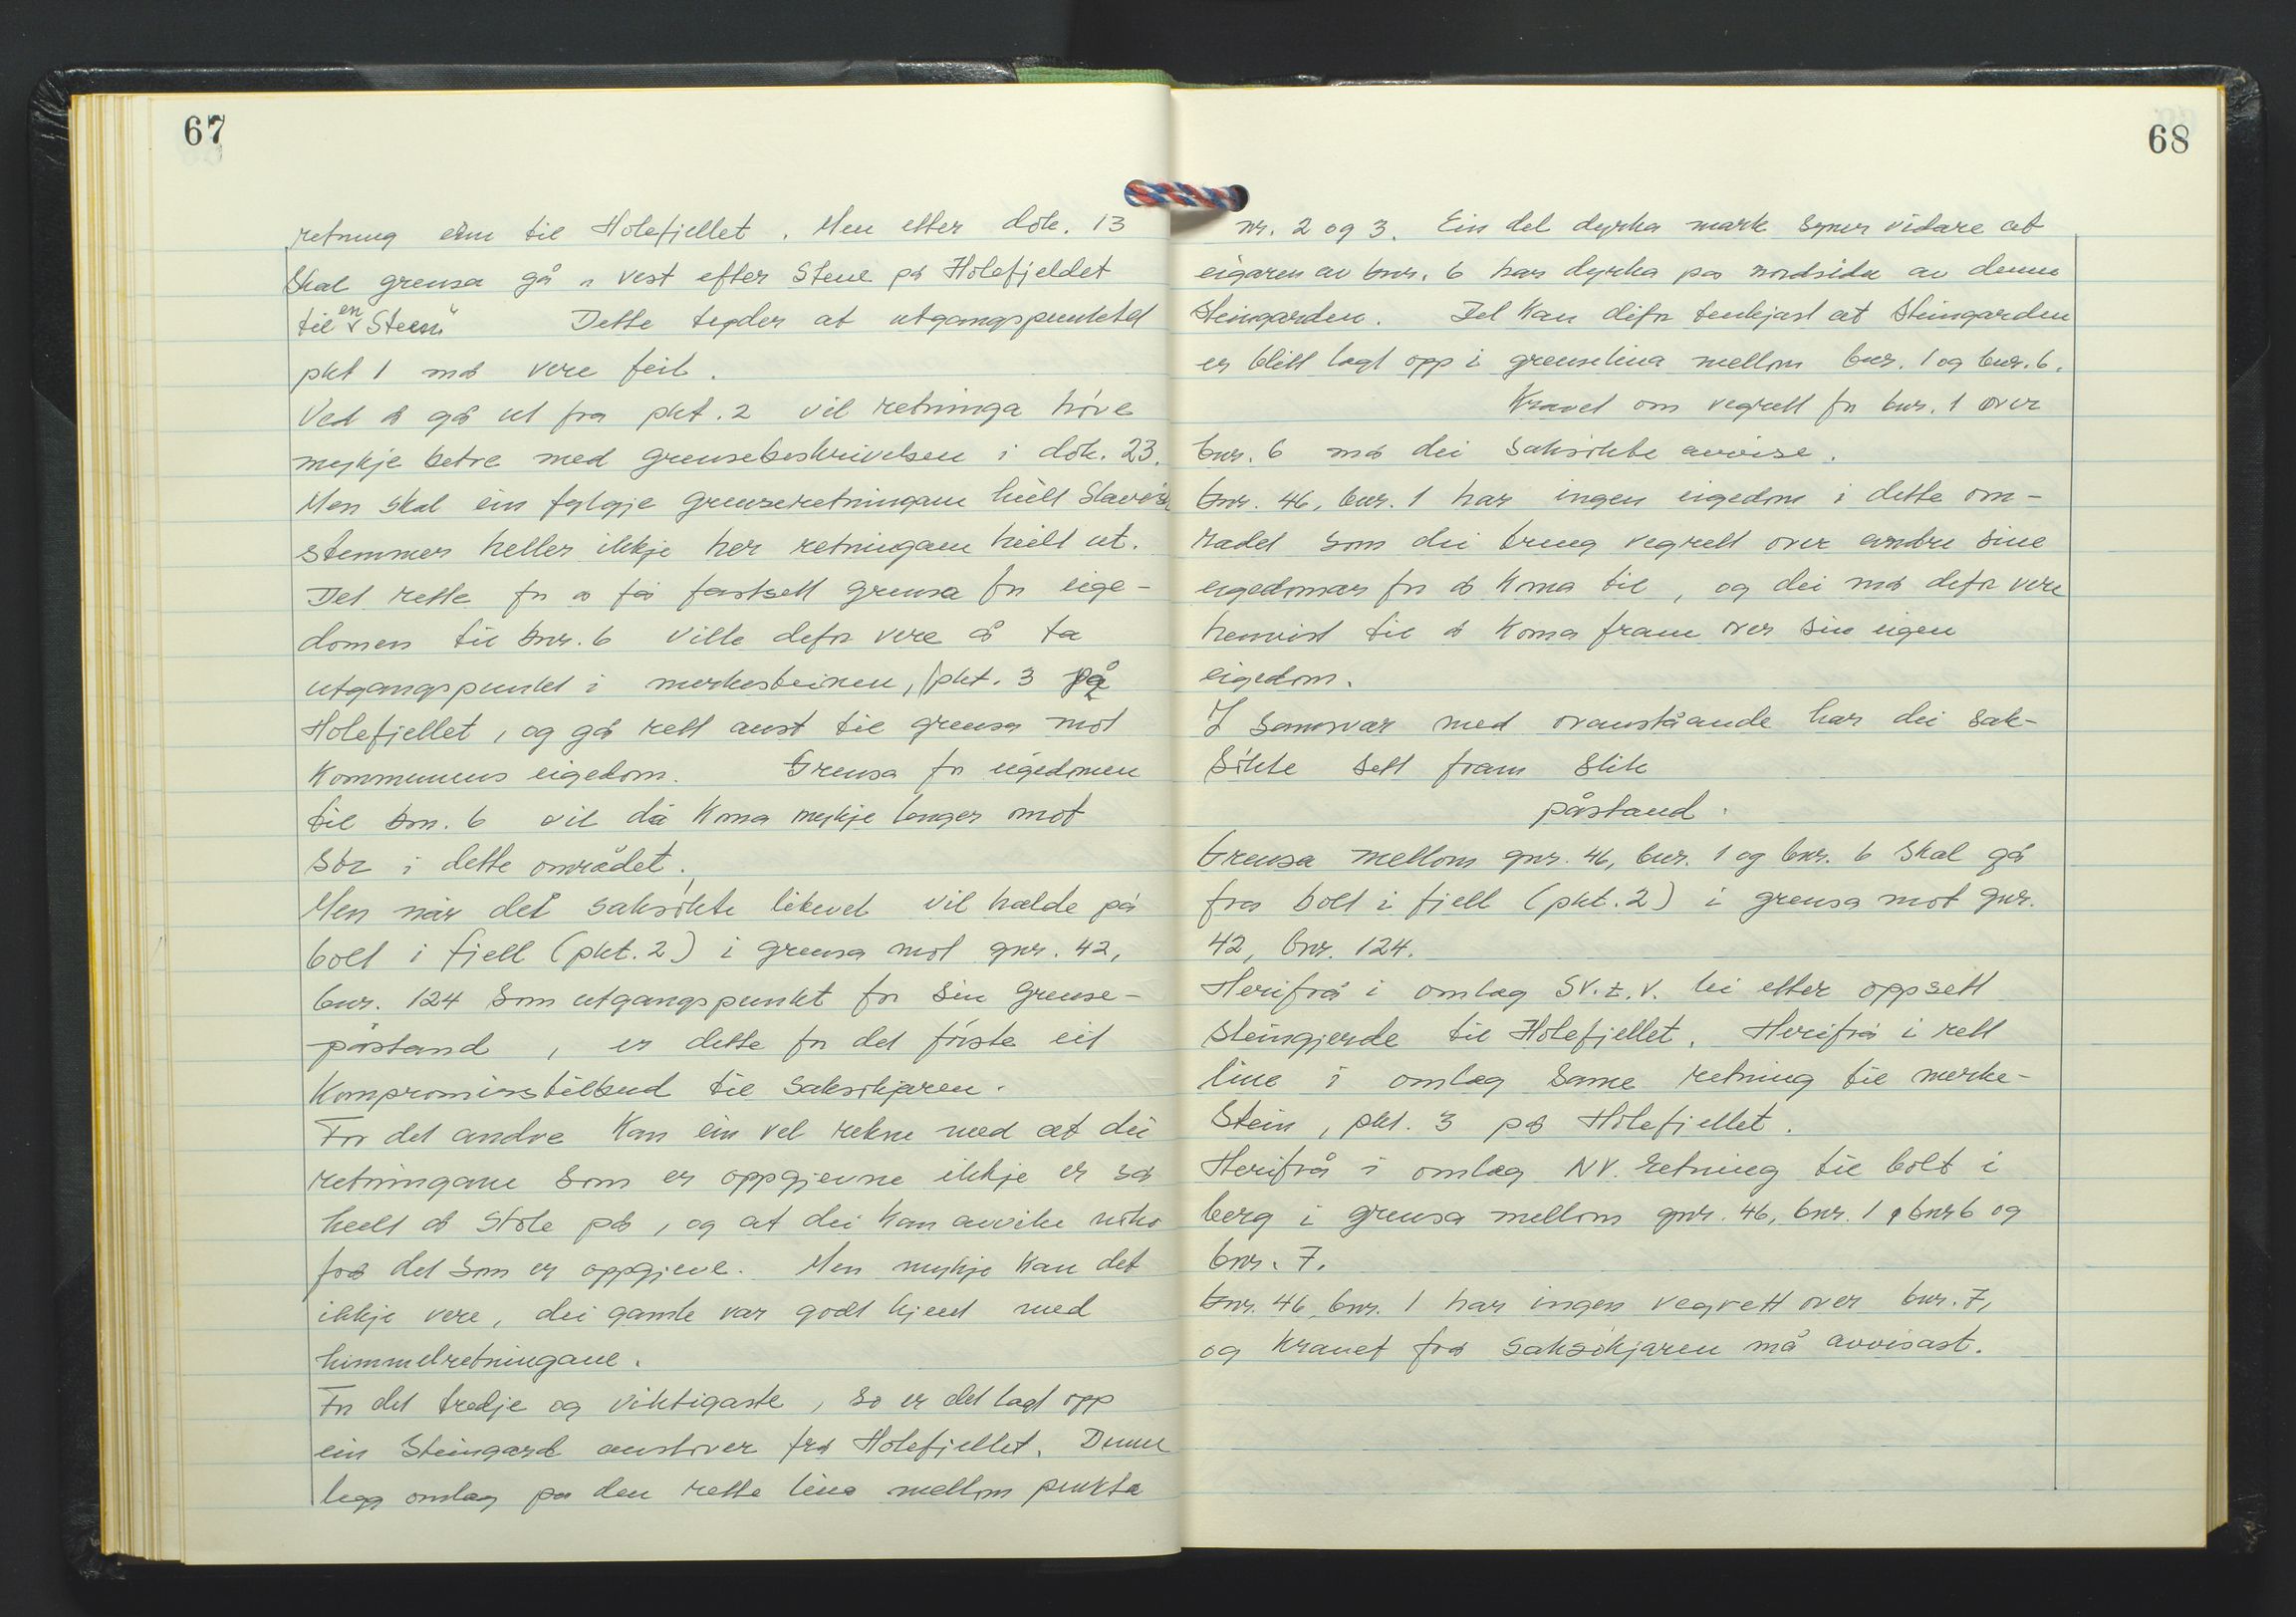 67
retning enn til Holefjellet. Men etter dok. 13
skal grensa gå " vest efter Stene på Holefjeldet
til en Steen" Dette tyder at utgangspunktet
pkt 1 må vere feil.
Ved å gå ut fra pkt. 2 vil retninga høve
mykje betre med grensebeskrivelsen i dok. 23.
Men skal ein fylgje grenseretningane heilt slavisk
stemmer heller ikkje her retningane heilt ut.
Det rette for å få fastsett grensa for eige-
domen til bnr. 6 ville defor vere å ta
utgangspunkt i merkesteinen, pkt. 3 på
Holefjellet, og gå rett aust til grensa mot
Kommunens eigedom. Grensa for eigedomen
til bnr. 6 vil då koma mykje lenger mot
sør i dette området.
Men når dei saksøkte likevel vil halde på
bolt i fjell (pkt. 2) i grensa mot gnr. 42,
bnr. 124 som utgangspunkt for sin grense-
påstand, er dette for det første eit
Kompromisstilbud til saksøkjaren.
For det andre kan ein vel rekne med at dei
retningane som er oppgjevne ikkje er så
heilt å stole på, og at dei kan avvike noko
frå det som er oppgjeve. Men mykje kan det
ikkje vere, dei gamle var godt kjent med
himmelretningane.
For det tredje og viktigaste, so er det lagt opp
ein Steingard austover frå Holefjellet. Denne
legg omlag på den rette lina mellom punkta
68
nr. 2 og 3. Ein del dyrka mark syner vidare at
eigaren av bnr. 6 har dyrka på nordsida av denne
Steingarden. Det kan difor tenkjast at Steingarden
er blitt lagt opp i grenselina mellom bnr. 1 og bnr. 6.
Kravet om vegrett for bnr. 1 over
bnr. 6 må dei saksøkte avvise.
Gnr. 46, bnr. 1 har ingen eigedom i dette om-
rådet som dei treng vegrett over andre sine
eigedomar for å koma til, og dei må defor vere
henvist til å koma fram over sin eigen
eigedom.
I samsvar med ovanståande har dei sak-
søkte sett fram slik
påstand.
Grensa mellom gnr. 46, bnr. 1 og bnr. 6 skal gå
fra bolt i fjell (pkt. 2) i grensa mot gnr.
42, bnr. 124.
Herifrå i omlag SV.t.V. lei etter oppsett
steingjerde til Holefjellet. Herifrå i rett
line i omlag same retning til merke-
Stein, pkt. 3 på Holefjellet.
Herifrå i omlag NV. retning til bolt i
berg i grensa mellom gnr. 46, bnr. 1, bnr 6 og
bnr. 7.
Gnr. 46, bnr. 1 har ingen vegrett over bnr. 7,
og kravet frå saksøkjaren må avvisast.